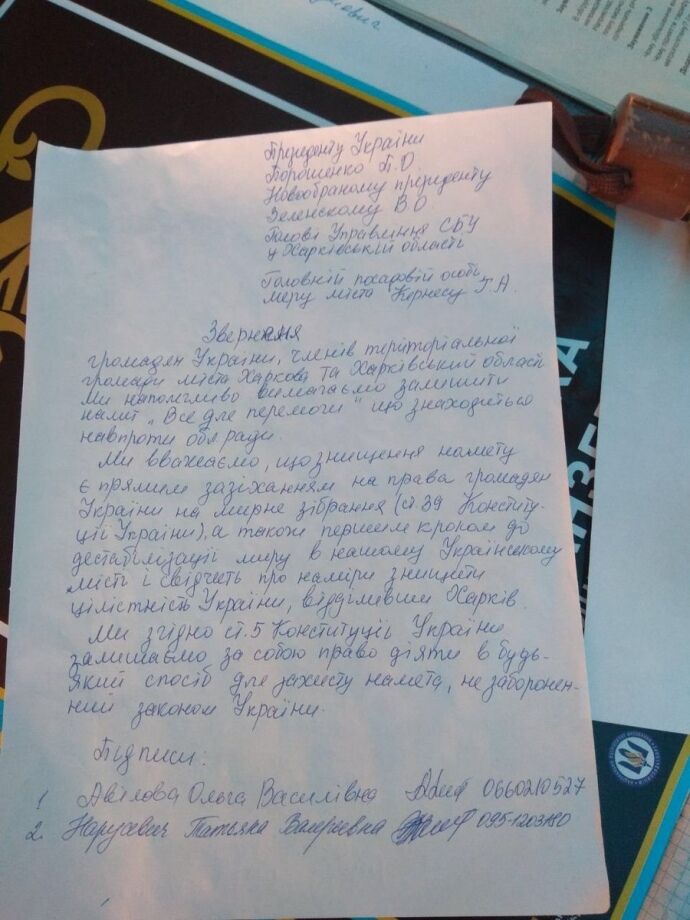 Президенту України
Порошенко П.О
Новообраному президенту
Зеленському В О
Голові Управління СБУ
у Харківській області
Головній посадовій особі
меру міста Кернесу Г.А.
Звернення
громадян України, членів територіальної
громади міста Харкова та Харківський області
Ми наполегливо вимагаємо залишити
намит „Все для перемоги" що знаходиться
навпроти обл ради.
Ми вважаємо, що знищення намету
є прямим зазіханням на права громадян
України на мирне зібрання (ст.39 Конститу-
ції України), а також першим кроком до
дестабілізації миру в нашому Українському
місті і свідчить про наміри знищити
цілістність України, відділивши Харків.
Ми згідно ст.5 Конституції України
залишаємо за собою право діяти в будь-
який спосіб для захисту намета, не заборонен-
ний законом України.
Підписи:
1 Авілова Ольга Василівна 0660210527
2. Нарусевич Татьяна Валерьевна 095-1203180